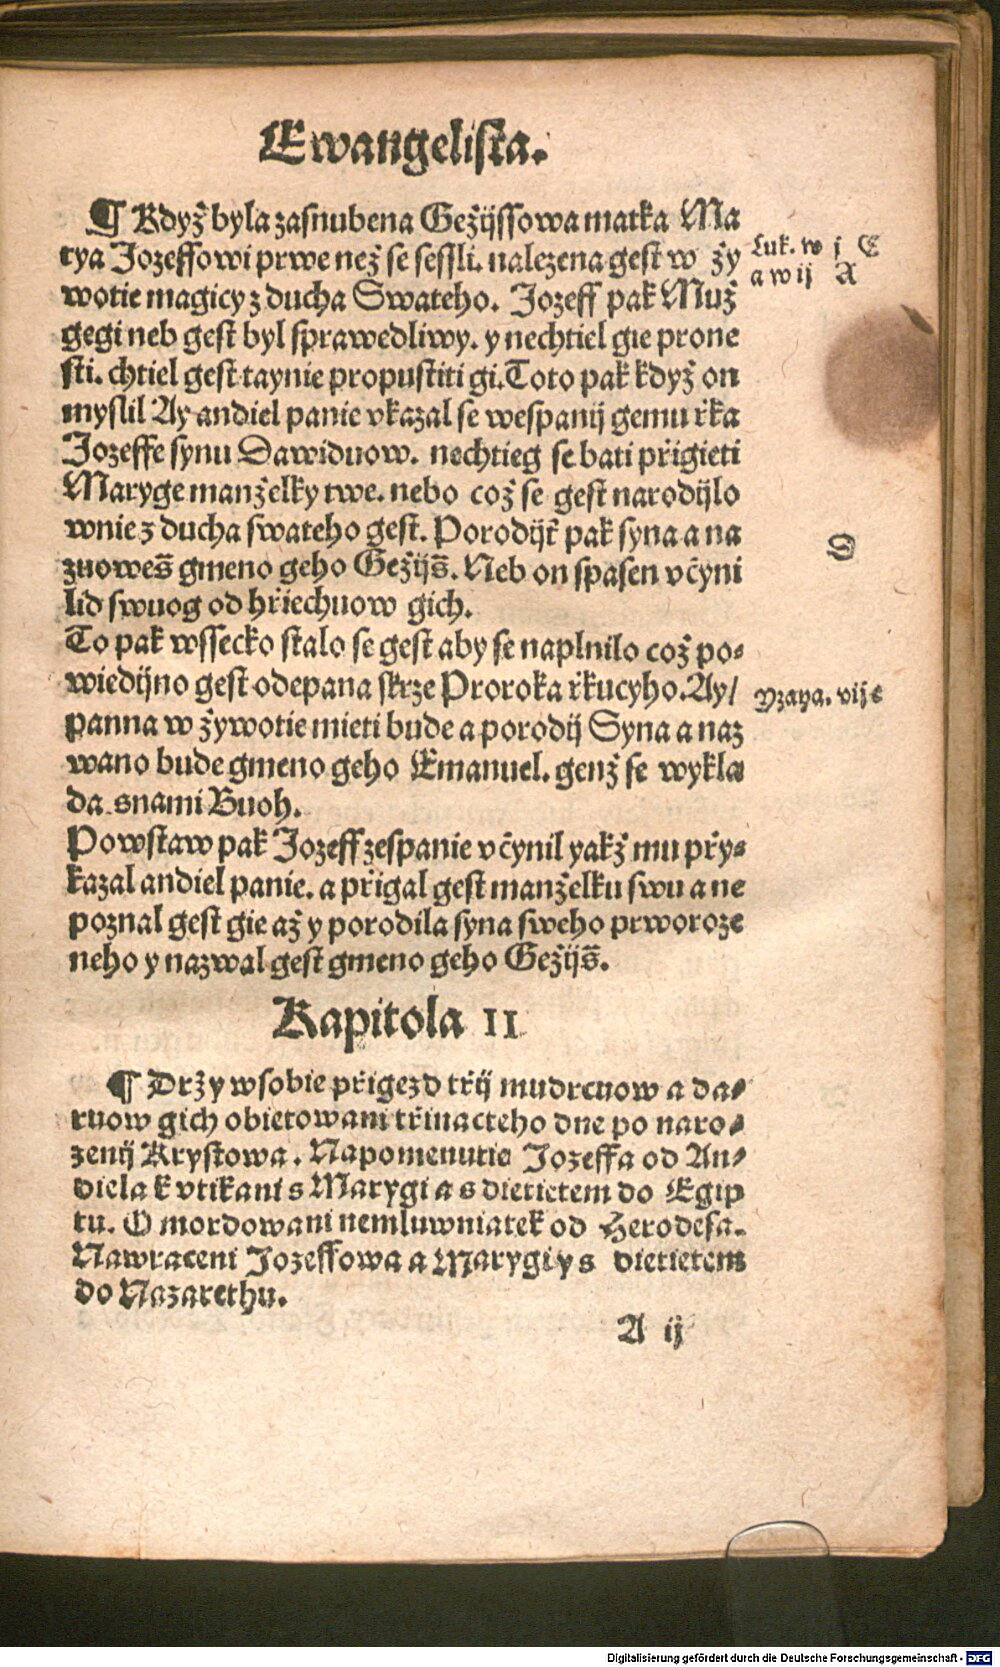 Ewangelista.
¶ Kdyż byla zasnubena Geżijssowa matka Ma
rya Jozeffowi prwe neż se sessli. nalezena gest w ży
Luk. w j C
a w ij A
wotie magicy z ducha Swateho. Jozeff pak Muż
gegi neb gest byl sprawedliwy. y nechtiel gie prone
sti. chtiel gest taynie propustiti gi. Toto pak kdyż on
myslil Ay andiel panie vkazal se wespanij gemu řka
Jozeffe synu Dawiduow. nechtieg se bati přigieti
Maryge manżelky twe. nebo coż se gest narodijlo
wnie z ducha swateho gest. Porodijť pak syna a na
D
zuowess̄ gmeno geho Geżijs̄. Neb on spasen včyni
lid swuog od hřiechuow gich.
To pak wssecko stalo se gest aby se naplnilo coż po⸗
wiedijno gest odepana skrze Proroka řkucyho. Ay/
Yzaya. vij c
panna w żywotie mieti bude a porodij Syna a naz
wano bude gmeno geho Emanuel. genż se wykla
da snami Buoh.
Powstaw pak Jozeff zespanie včynil yakż mu přy⸗
kazal andiel panie. a přigal gest manżelku swu a ne
poznal gest gie aż y porodila syna sweho prworoze
neho y nazwal gest gmeno geho Geżijs̄.
Kapitola II
¶ Drży wsobie přigezd třij mudrcuow a da⸗
ruow gich obietowani třinacteho dne po naro⸗
zenij Krystowa. Napomenutie Jozeffa od An⸗
diela k vtikani s Marygi a s dietietem do Egip
tu. O mordowani nemluwniatek od Herodesa.
Nawraceni Jozeffowa a Marygi y s dietietem
do Nazarethu.
A ij
Digitalisierung gefördert durch die Deutsche Forschungsgemeinschaft - DFG